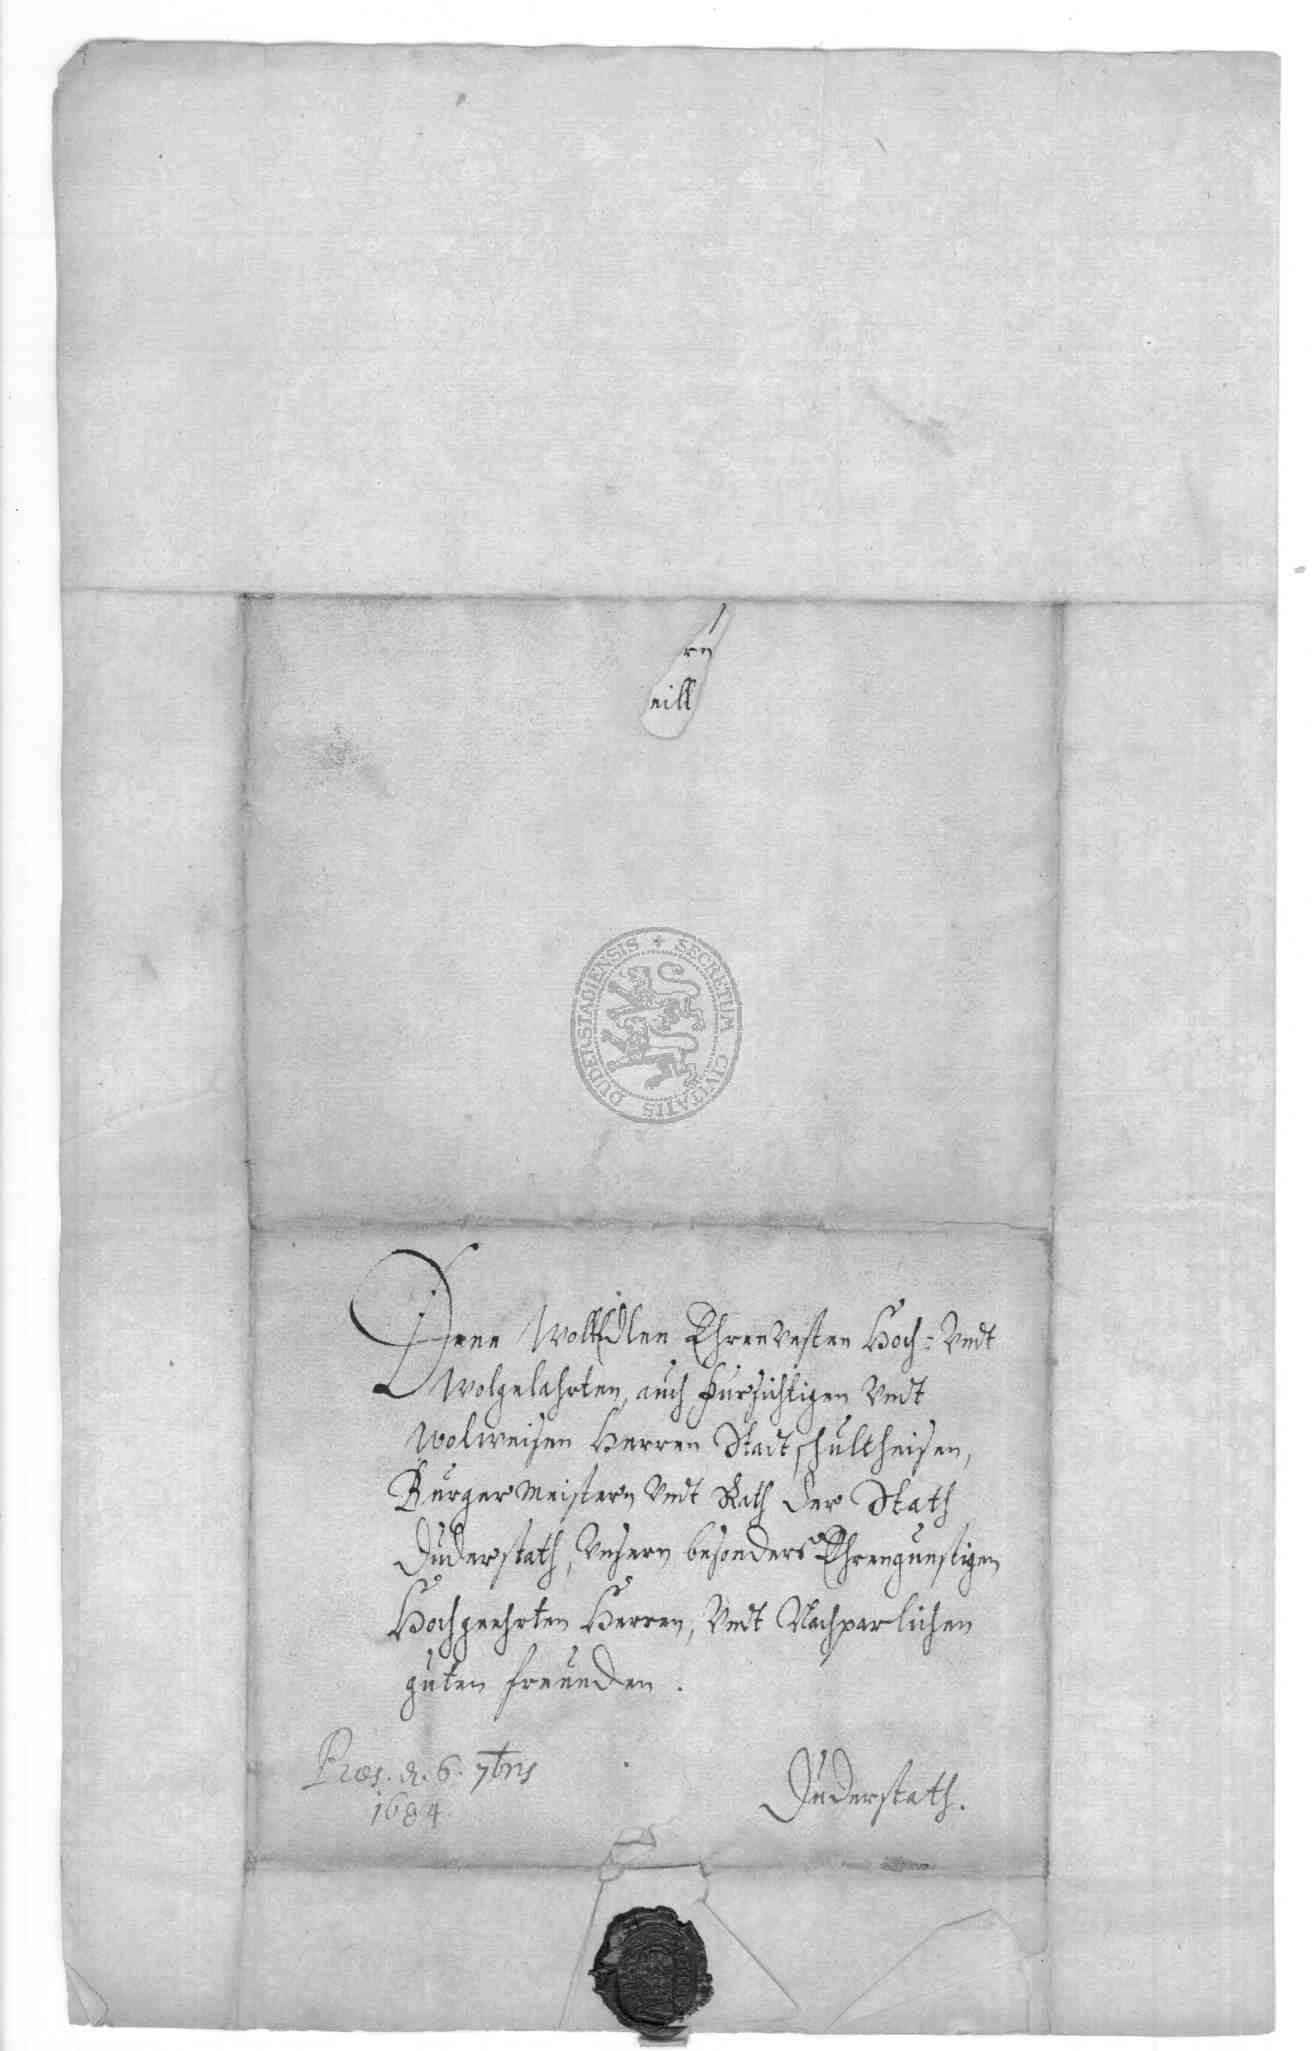 rn
eill
DUDERSTADIENSIS + SECRETUM CIVITATIS
Denn WollEdlen EhrenVesten Hoch- Vndt
Wolgelahrten, auch fürsichtigen Vndt
Wolweisen Herren Stadtschultheisen,
Bürgermeistern Vndt Rath der Stath
Duderstath, Vnsern besonders Ehrengunstigen
Hochgeehrten Herren, Vndt Nachparlichen
guten freunden.
Præs. d. 6. 7bris
1684
Duderstath.